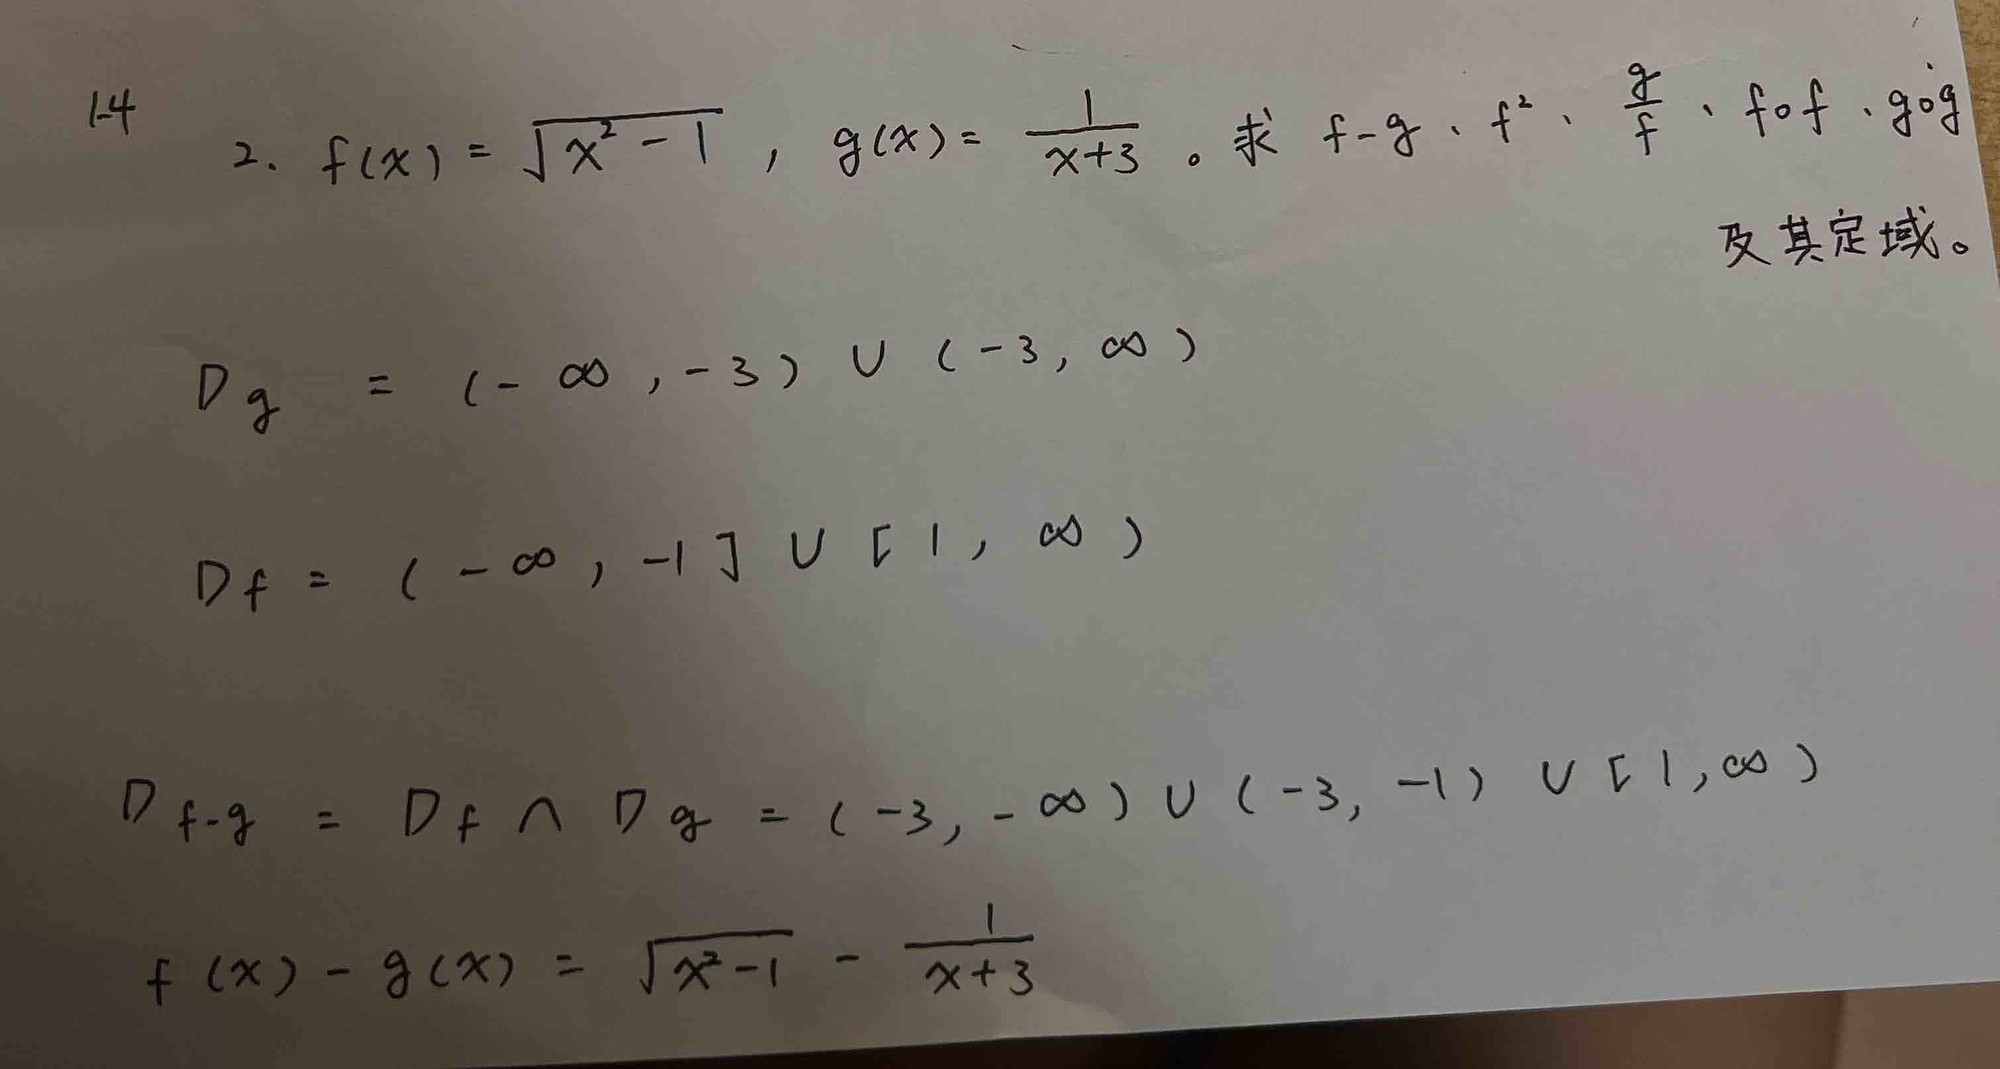 1-4
2. f(x) = √(x² - 1) , g(x) = 1/(x+3) 。求 f-g、f²、g/f、f∘f、g∘g
及其定域。
Dg = (-∞, -3) ∪ (-3, ∞)
Df = (-∞, -1] ∪ [1, ∞)
Df-g = Df ∩ Dg = (-3, -∞) ∪ (-3, -1) ∪ [1, ∞)
f(x) - g(x) = √(x²-1) - 1/(x+3)